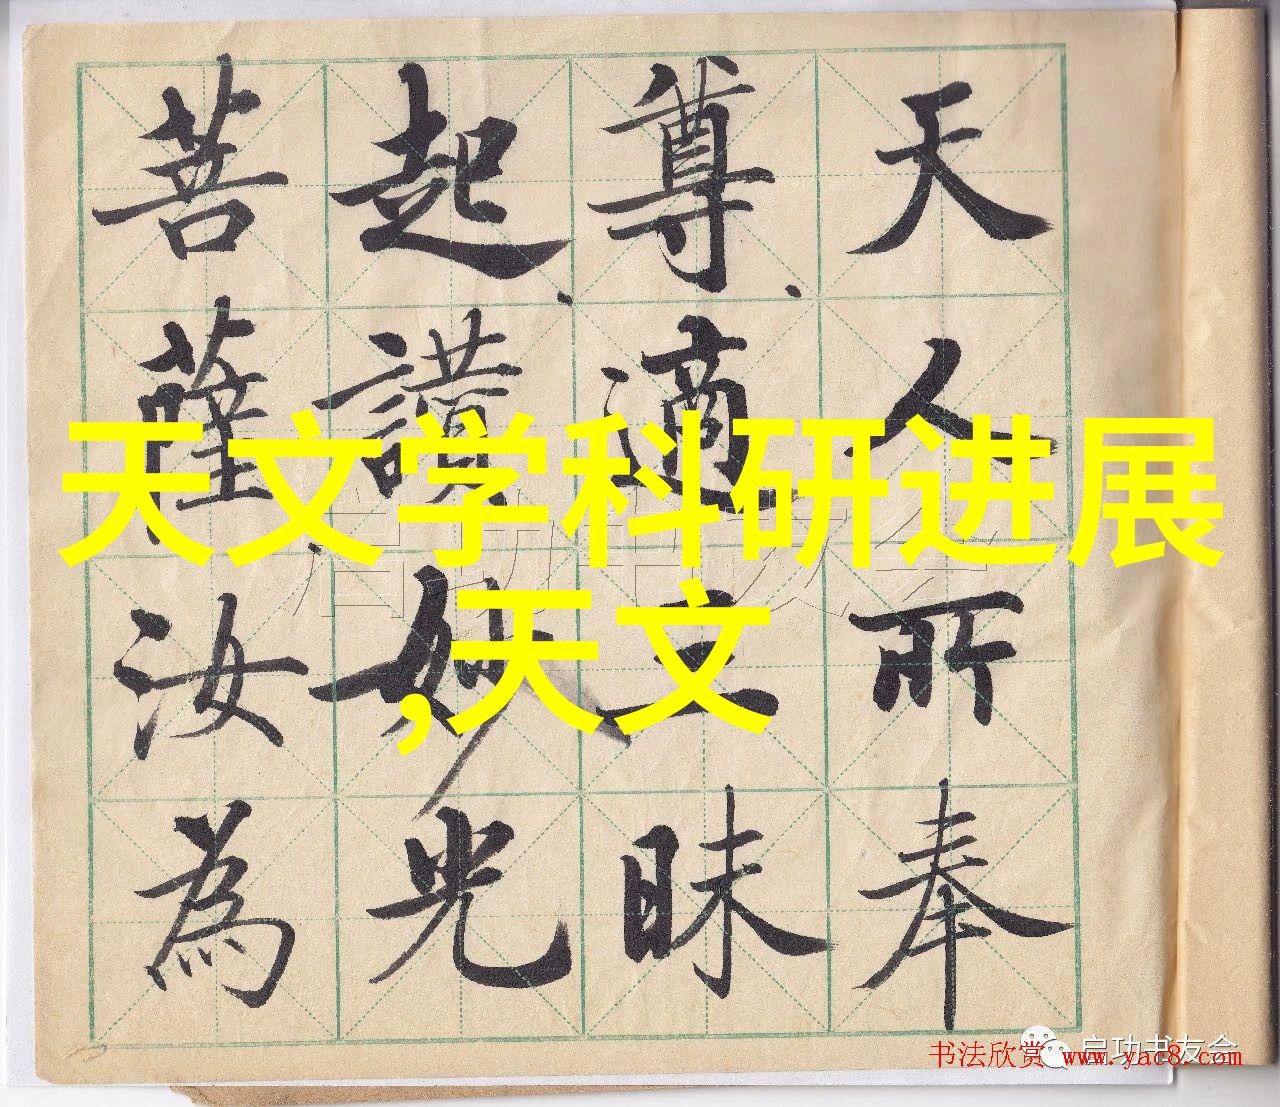 天人所奉
尊、適三昧
起、讚妙光
菩薩汝為
天文学科研进展
,天文
启功书友会
启功书友会
书法欣赏 www.yac8.com